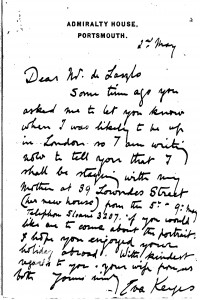 ADMIRALTY HOUSE,
PORTSMOUTH.
2nd May
Dear Mr. de Laszlo
Some time ago you
asked me to let you know
when I was likely to be up
in London so I am writing
now to tell you that I
shall be staying with my
Mother at 39 Lowndes Street
(her new house) from the 5th - 9th May
Telephone Sloane 3207. if you would
like me to come about the portrait.
I hope you enjoyed your
holiday abroad. With kindest
regards to you & your wife from us
both Yours sincly
Eva Keyes